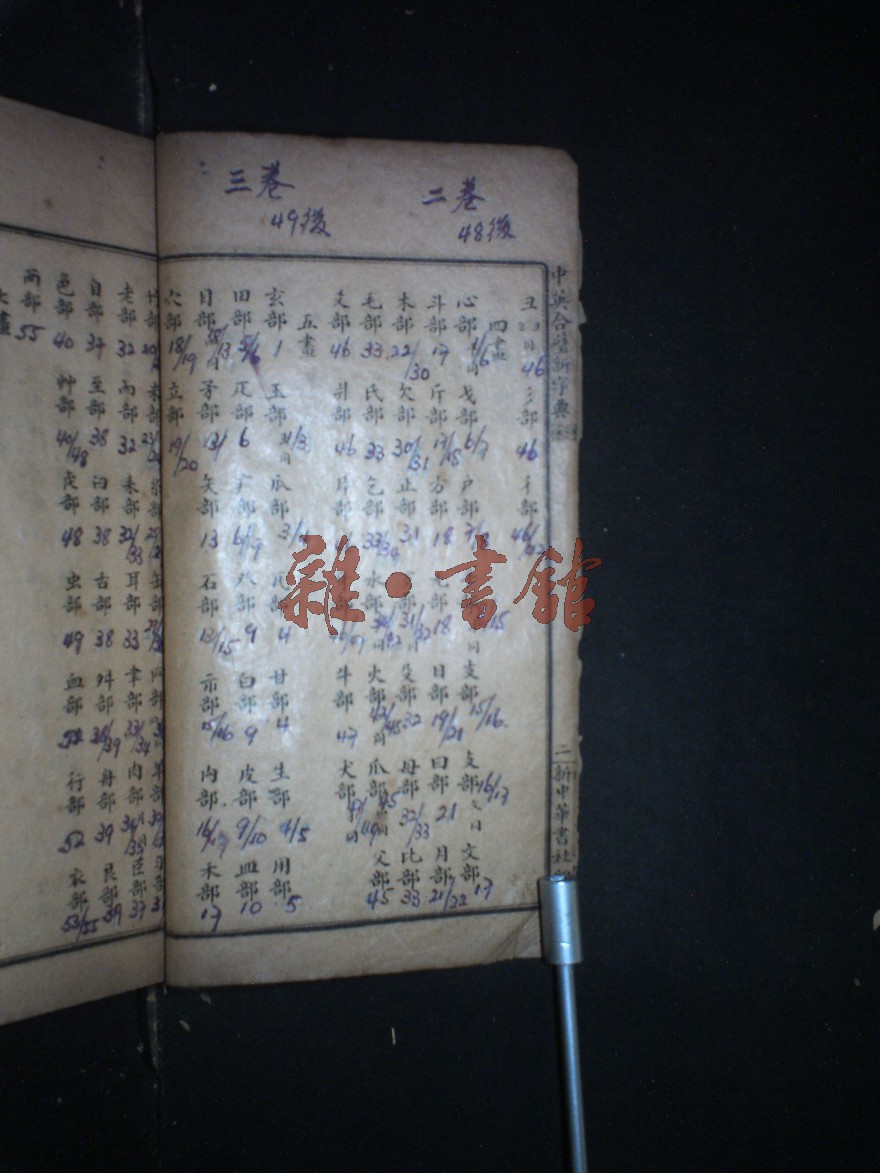 二巷
48後
三巷
49後
中英合璧新字典
二 新中華書社
丑 46 彡部 46 彳部 46/47
四畫
心部 1/6 戈部 6/7 戶部 7/8 15 支部 15/16 攴部 16/17 文部 17
斗部 17 斤部 17/18 方部 18 18 日部 19/21 曰部 21 月部 21/22
木部 22/30 欠部 30/31 止部 31 31/32 殳部 32 毋部 32/33 比部 33
毛部 33 氏部 33 气部 33/34 水部 火部 42/45 爪部 45 父部 45
爻部 46 爿部 46 片部 牛部 47 犬部
五畫
玄部 1 玉部 1/3 瓜部 瓦部 4 甘部 4 生部 4/5 用部 5
田部 5/6 疋部 6 疒部 6/9 癶部 9 白部 9 皮部 9/10 皿部 10
目部 矛部 13 矢部 13 石部 13/15 示部 15/16 禸部 16/17 禾部 17
穴部 18/19 立部 19/20
竹部 米部 羊部
老部 32 而部 32 耒部 32/33 耳部 33 聿部 33/34 肉部 34/35 臣部 37
自部 37 至部 38 臼部 38 舌部 38 舛部 38/39 舟部 39 艮部 39
色部 40 艸部 40/48 虍部 48 虫部 49 血部 52 行部 52 衣部 53/55
襾部 55
雜·書館